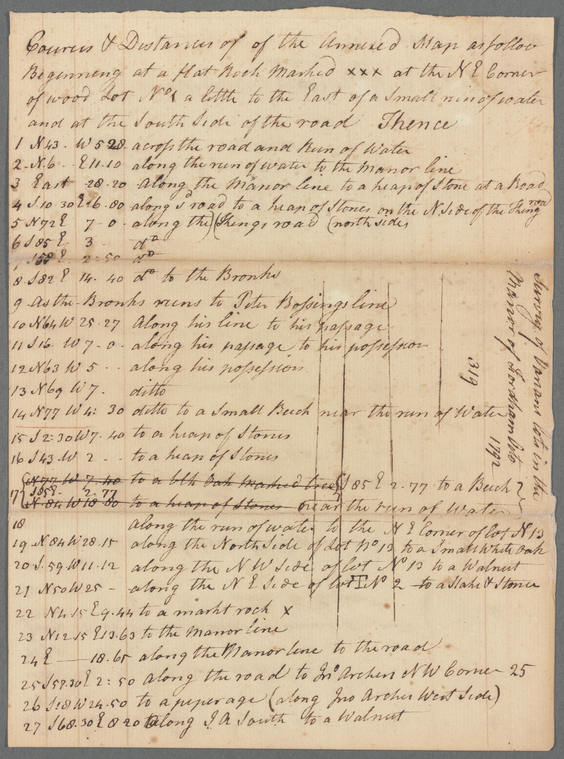 Courses & Distances of of the Annexed Map as follow
Beginning at a flat Rock Marked xxx at the N E Corner
of wood Lot No 1 a little to the East of a Small run of water
and at the South Side of the road Thence
1 N43 - W 5 28 across the road and Run of Water
2 - N.6 - - E 11.10 along the run of water to the Manor line
3 East - 28 - 20 Along the Manor line to a heap of Stone at a Road
4 S10 - 30 E 6 - 80 along sd road to a heap of Stones on the N Side of the Kings road
5 N72 E 7 - 0 - along the (Kings road (north side
6 S85 E 3 - do
7 S58 E 2 : 50 do
8 S82 E 14 - 40 do to the Bronks
9 - As the Bronks runs to Peter Bossings line
10 N64 W 25 - 27 Along his line to his passage
11 S16 W 7 - 0 - along his passage to his possession
12 N63 W 5 - - along his possession
13 N69 W 7 . ditto
14 N77 W 4 : 30 ditto to a Small Beech near the run of Water
15 S2 : 30 W 7 - 40 to a heap of Stones
16 S43 - W 2 - - to a heap of Stones
N77 W 7 - 40 to a blk Oak Marked tree S85 E 2 - 77 to a Beech
17 S85 E - 2 - 77
N84 W 18 - 80 to a heap of Stones near the run of Water
18 along the run of water to the N E Corner of Lot N 13
19 - N84 W 28 - 15 along the North Side of Lot No 13 to a Small White Oak
20 S . 59 W 11 - 12 along the N W Side of Lot N 13 to a Walnut
21 N50 W 25 - along the N E Side of Lot No 2 to a Stake & Stones
22 N4.15 E 9 . 44 to a markt rock x
23 N12 15 E 13 . 63 to the Manor line
24 E —— 18 . 65 along the Manor line to the road
25 S57.30 E 2 : 50 along the road to Jno Archers N W Corner 25
26 S18 W 24 . 50 to a peperage (along Jno Archer West Side)
27 S68.30 E 8 20 along J A South to a Walnut
Survey of Variant lots in the
Manor of Fordham Octo 1792
319